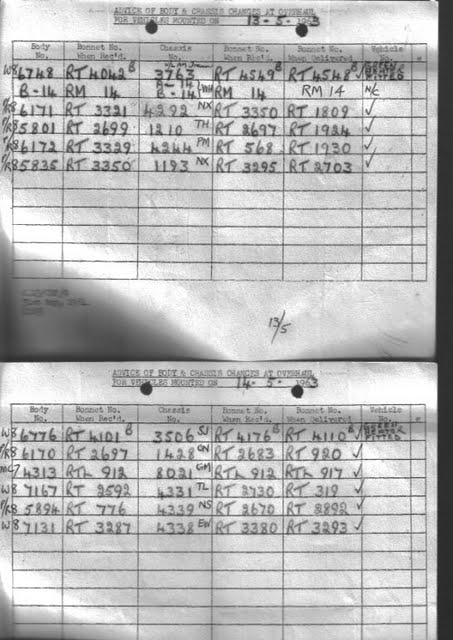 ADVICE OF BODY & CHASSIS CHANGES AT OVERHAUL
FOR VEHICLES MOUNTED ON 13 - 5 - 1963
Body No. Bonnet No. When Rec'd. Chassis No. Bonnet No. When Rec'd. Bonnet No. When Delivered Vehicle No.
W8 6748 RT 4042 B 3763 RT 4549 B RT 4548 B ✓ GREEN FITTED
B-14 RM 14 A-14 B-14 RM 14 RM 14 N/C
P/R8 6171 RT 3321 4292 NX RT 3350 RT 1809 ✓
P/R8 5801 RT 2699 1210 TH RT 2697 RT 1924 ✓
P/R8 6172 RT 3329 4244 PM RT 568 RT 1930 ✓
P/R8 5835 RT 3350 1193 NX RT 3295 RT 2703 ✓
13/5
ADVICE OF BODY & CHASSIS CHANGES AT OVERHAUL
FOR VEHICLES MOUNTED ON 14 - 5 - 1963
Body No. Bonnet No. When Rec'd. Chassis No. Bonnet No. When Rec'd. Bonnet No. When Delivered Vehicle No.
W8 6776 RT 4101 B 3506 SJ RT 4176 B RT 4110 B ✓ GREEN FITTED
P/R8 6170 RT 2697 1428 GN RT 2683 RT 920 ✓
MC7 4313 RTL 912 8021 GM RTL 912 RTL 917 ✓
W8 7167 RT 2592 4331 TL RT 2730 RT 319 ✓
P/R8 5894 RT 776 4339 NS RT 2670 RT 2892 ✓
W8 7131 RT 3287 4338 EW RT 3380 RT 3293 ✓